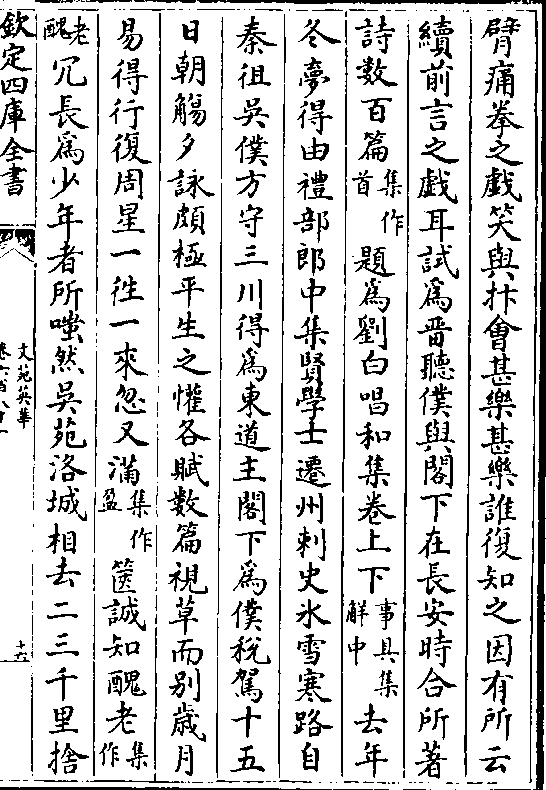 臂痛拳之戲笑與抃會甚樂甚樂誰復知之因有所云
續前言之戲耳試爲畱聽僕與閣下在長安時合所著
詩數百篇集作首題爲劉白唱和集卷上下事具集解中去年
冬夢得由禮部郎中集賢學士遷州刺史氷雪寒路自
秦徂吳僕方守三川得爲東道主閣下爲僕稅駕十五
日朝觴夕詠頗極平生之懽各賦數篇視草而別歲月
易得行復周星一徃一來忽又滿集作盈篋誠知醜老集作
老醜冗長爲少年者所嗤然吳苑洛城相去二三千里捨
欽定四庫全書
文苑英華
卷六百八十一
十六